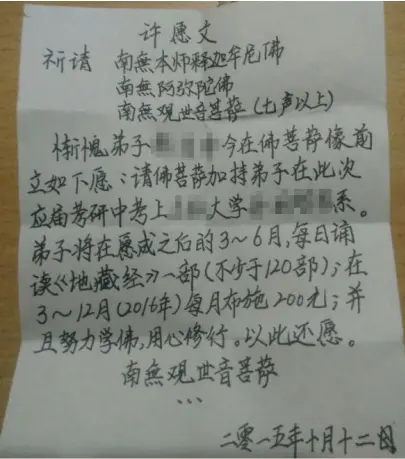 许愿文
祈请 南無本师释迦牟尼佛
南無阿弥陀佛
南無观世音菩萨(七声以上)
惭愧弟子 今在佛菩萨像前
立如下愿:请佛菩萨加持弟子在此次
应届考研中考上 大学 系。
弟子将在愿成之后的3~6月,每日诵
读《地藏经》一部(不少于120部);在
3~12月(2016年)每月布施200元;并
且努力学佛,用心修行。以此还愿。
南無观世音菩萨
...
二零一五年十月十二日